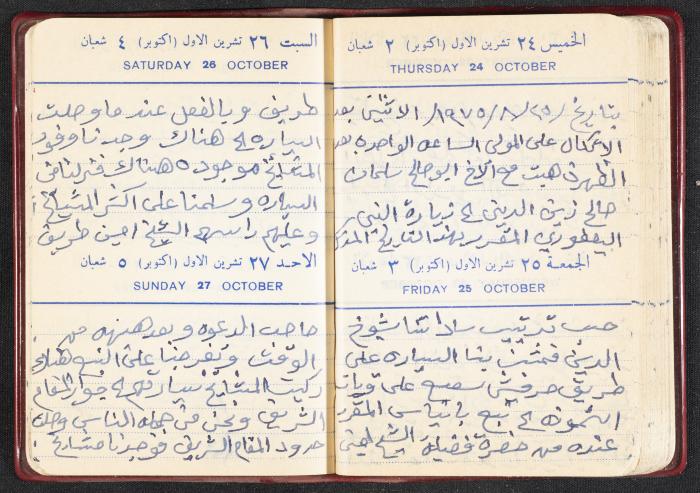 الخميس ٢٤ تشرين الاول (اكتوبر) ٢ شعبان
THURSDAY 24 OCTOBER
بتاريخ /٢٥/٨/١٩٧٥/ الاثنين بعد
الاتكال على المولى الساعه الواحده بعد
الظهر ذهبت مع الاخ ابو صالح سلمان
صالح زين الدين الى زيارة النبي
اليعفوري المقرر بهذا التاريخ
الجمعة ٢٥ تشرين الاول (اكتوبر) ٣ شعبان
FRIDAY 25 OCTOBER
حسب ترتيب ساداتنا شيوخ
الدين فمشت بنا السياره على
طريق حرفش سعسع على
الى نبع بانياس المقرر
عنده من حضرة فضيلة الشيخ
السبت ٢٦ تشرين الاول (اكتوبر) ٤ شعبان
SATURDAY 26 OCTOBER
طريف وبالفعل عندما وصلت
السياره الى هناك وجدنا وفود
المشايخ موجوده هناك فنزلنا من
السياره وسلمنا على اكثر المشايخ
وعليهم راسهم الشيخ امين طريف
الاحد ٢٧ تشرين الاول (اكتوبر) ٥ شعبان
SUNDAY 27 OCTOBER
صاحب الدعوه وبعد هنيهه من
الوقت وتفرجنا على النبع هناك
ركبت المشايخ سياراتهم الى جوار المقام
الشريف ونحن من جملة الناس وصلنا
حدود المقام الشريف فوجدنا مشايخ